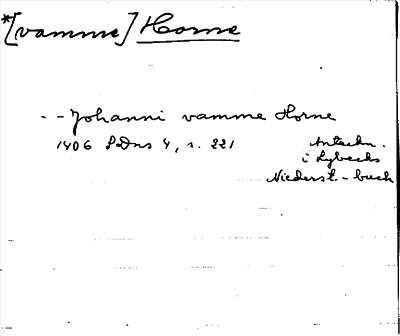 *[vamme] Horne
- - Johanni vamme Horne
1406 SDns 4, s. 221
Anteckn.
i Lybecks
Niederst. - buch